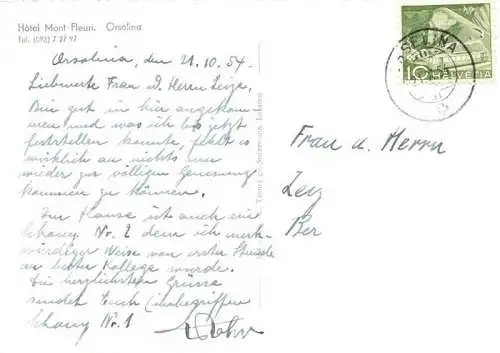 Hôtel Mont-Fleuri. Orselina
Tel. (092) 7 27 97
Orselina, den 21.10.54.
Liebwerte Frau & Herrn
Bin gut in hier angekom-
men und was ich bis jetzt
feststellen konnte, fehlt es
wirklich an nichts um
wieder zur völligen Genesung
kommen zu können.
Im Hause ist auch ein
Schang Nr. 2 dem ich merk-
würdiger Weise von erster Stunde
an bester Kollege wurde.
Die herzlichsten Grüsse
sendet Euch (inbegriffen
Schang Nr. 1
Frau u. Herrn
Ber
ORSELINA
10 HELVETIA